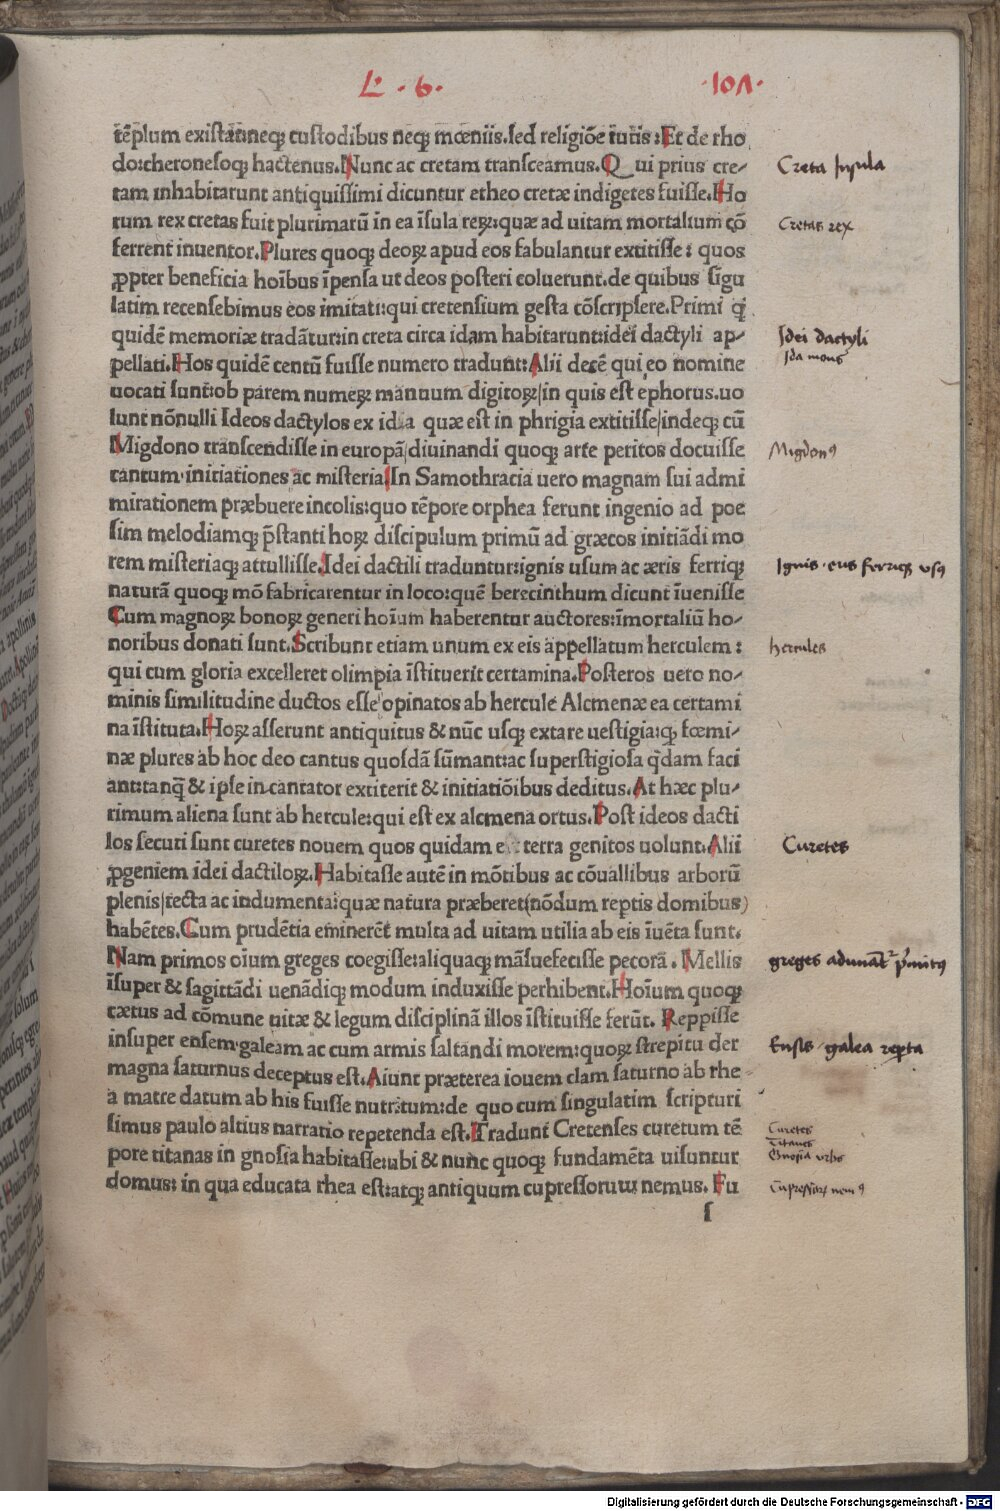 L. 6. 101.
tẽplum existat:neqꝫ custodibus neqꝫ mœniis.sed religiõe tutis:Et de rho
do:cheronesoqꝫ hactenus.Nunc ac cretam transceamus.Qui prius cre-
tam inhabitarunt antiquissimi dicuntur etheo cretæ indigetes fuisse.Ho
rum rex cretas fuit plurimarũ in ea ĩsula reꝝ:quæ ad uitam mortalium cõ
ferrent inuentor.Plures quoqꝫ deoꝝ apud eos fabulantur extitisse: quos
ꝓpter beneficia hoĩbus ĩpensa ut deos posteri coluerunt.de quibus sĩgu
latim recensebimus eos imitati:qui cretensium gesta cõscripsere.Primi q̃
quidẽ memoriæ tradãtur:in creta circa idam habitarunt:idei dactyli ap-
pellati.Hos quidẽ centũ fuisse numero tradunt:Alii decẽ qui eo nomine
uocati sunt:ob parem numeꝝ manuum digitoꝝ/in quis est ephorus.uo
lunt nõnulli Ideos dactylos ex ida quæ est in phrigia extitisse/indeqꝫ cũ
Migdono transcendisse in europã/diuinandi quoqꝫ arte peritos docuisse
tantum initiationes ac misteria.In Samothracia uero magnam sui admi
mirationem præbuere incolis:quo tẽpore orphea ferunt ingenio ad poe
sim melodiamqꝫ p̃stanti hoꝝ discipulum primũ ad græcos initiãdi mo
rem misteriaqꝫ attullisse.Idei dactili traduntur:ignis usum ac æris ferriqꝫ
naturã quoqꝫ mõ fabricarentur in loco:quẽ berecinthum dicunt ĩuenisse
Cum magnoꝝ bonoꝝ generi hoĩum haberentur auctores:ĩmortaliũ ho-
noribus donati sunt.Scribunt etiam unum ex eis appellatum herculem:
qui cum gloria excelleret olimpia ĩstituerit certamina.Posteros uero no-
minis similitudine ductos esse opinatos ab hercule Alcmenæ ea certami
na ĩstituta.Hoꝝ asserunt antiquitus & nũc usqꝫ extare uestigia:qꝫ fœmi-
næ plures ab hoc deo cantus quosdã sũmant:ac superstigiosa q̃dam faci
ant:tanq̃ & ipse in cantator extiterit & initiatiõibus deditus.At hæc plu-
rimum aliena sunt ab hercule:qui est ex alcmena ortus.Post ideos dacti
los secuti sunt curetes nouem quos quidam e terra genitos uolunt.Alii
ꝓgeniem idei dactiloꝝ.Habitasse autẽ in mõtibus ac cõuallibus arborũ
plenis/tecta ac indumenta:quæ natura præberet(nõdum reptis domibus)
habẽtes.Cum prudẽtia eminerẽt multa ad uitam utilia ab eis ĩuẽta sunt.
Nam primos oĩum greges coegisse:aliquaqꝫ mãsuefecisse pecora. Mellis
ĩsuper & sagittãdi uenãdiqꝫ modum induxisse perhibent.Hoĩum quoqꝫ
cætus ad cõmune uitæ & legum disciplinã illos ĩstituisse ferũt. Reppisse
insuper ensem galeam ac cum armis saltandi morem:quoꝝ strepitu der
magna saturnus deceptus est.Aiunt præterea iouem clam saturno ab rhe
a matre datum ab his fuisse nutritum:de quo cum singulatim scripturi
simus paulo altius narratio repetenda est.Tradunt Cretenses curetum tẽ
pore titanas in gnosia habitasse:ubi & nunc quoqꝫ fundamẽta uisuntur
domus: in qua educata rhea est:atqꝫ antiquum cupressorum nemus. Fu
ſ
Creta Insula
Cretas rex
Idei dactyli
Ida mons
Migdonꝰ
Ignis . eris ferriqꝫ usꝰ
hercules
Curetes
greges
Ensis . galea repta
Curetes
Titanes
Gnosia urbs
Digitalisierung gefördert durch die Deutsche Forschungsgemeinschaft - DFG